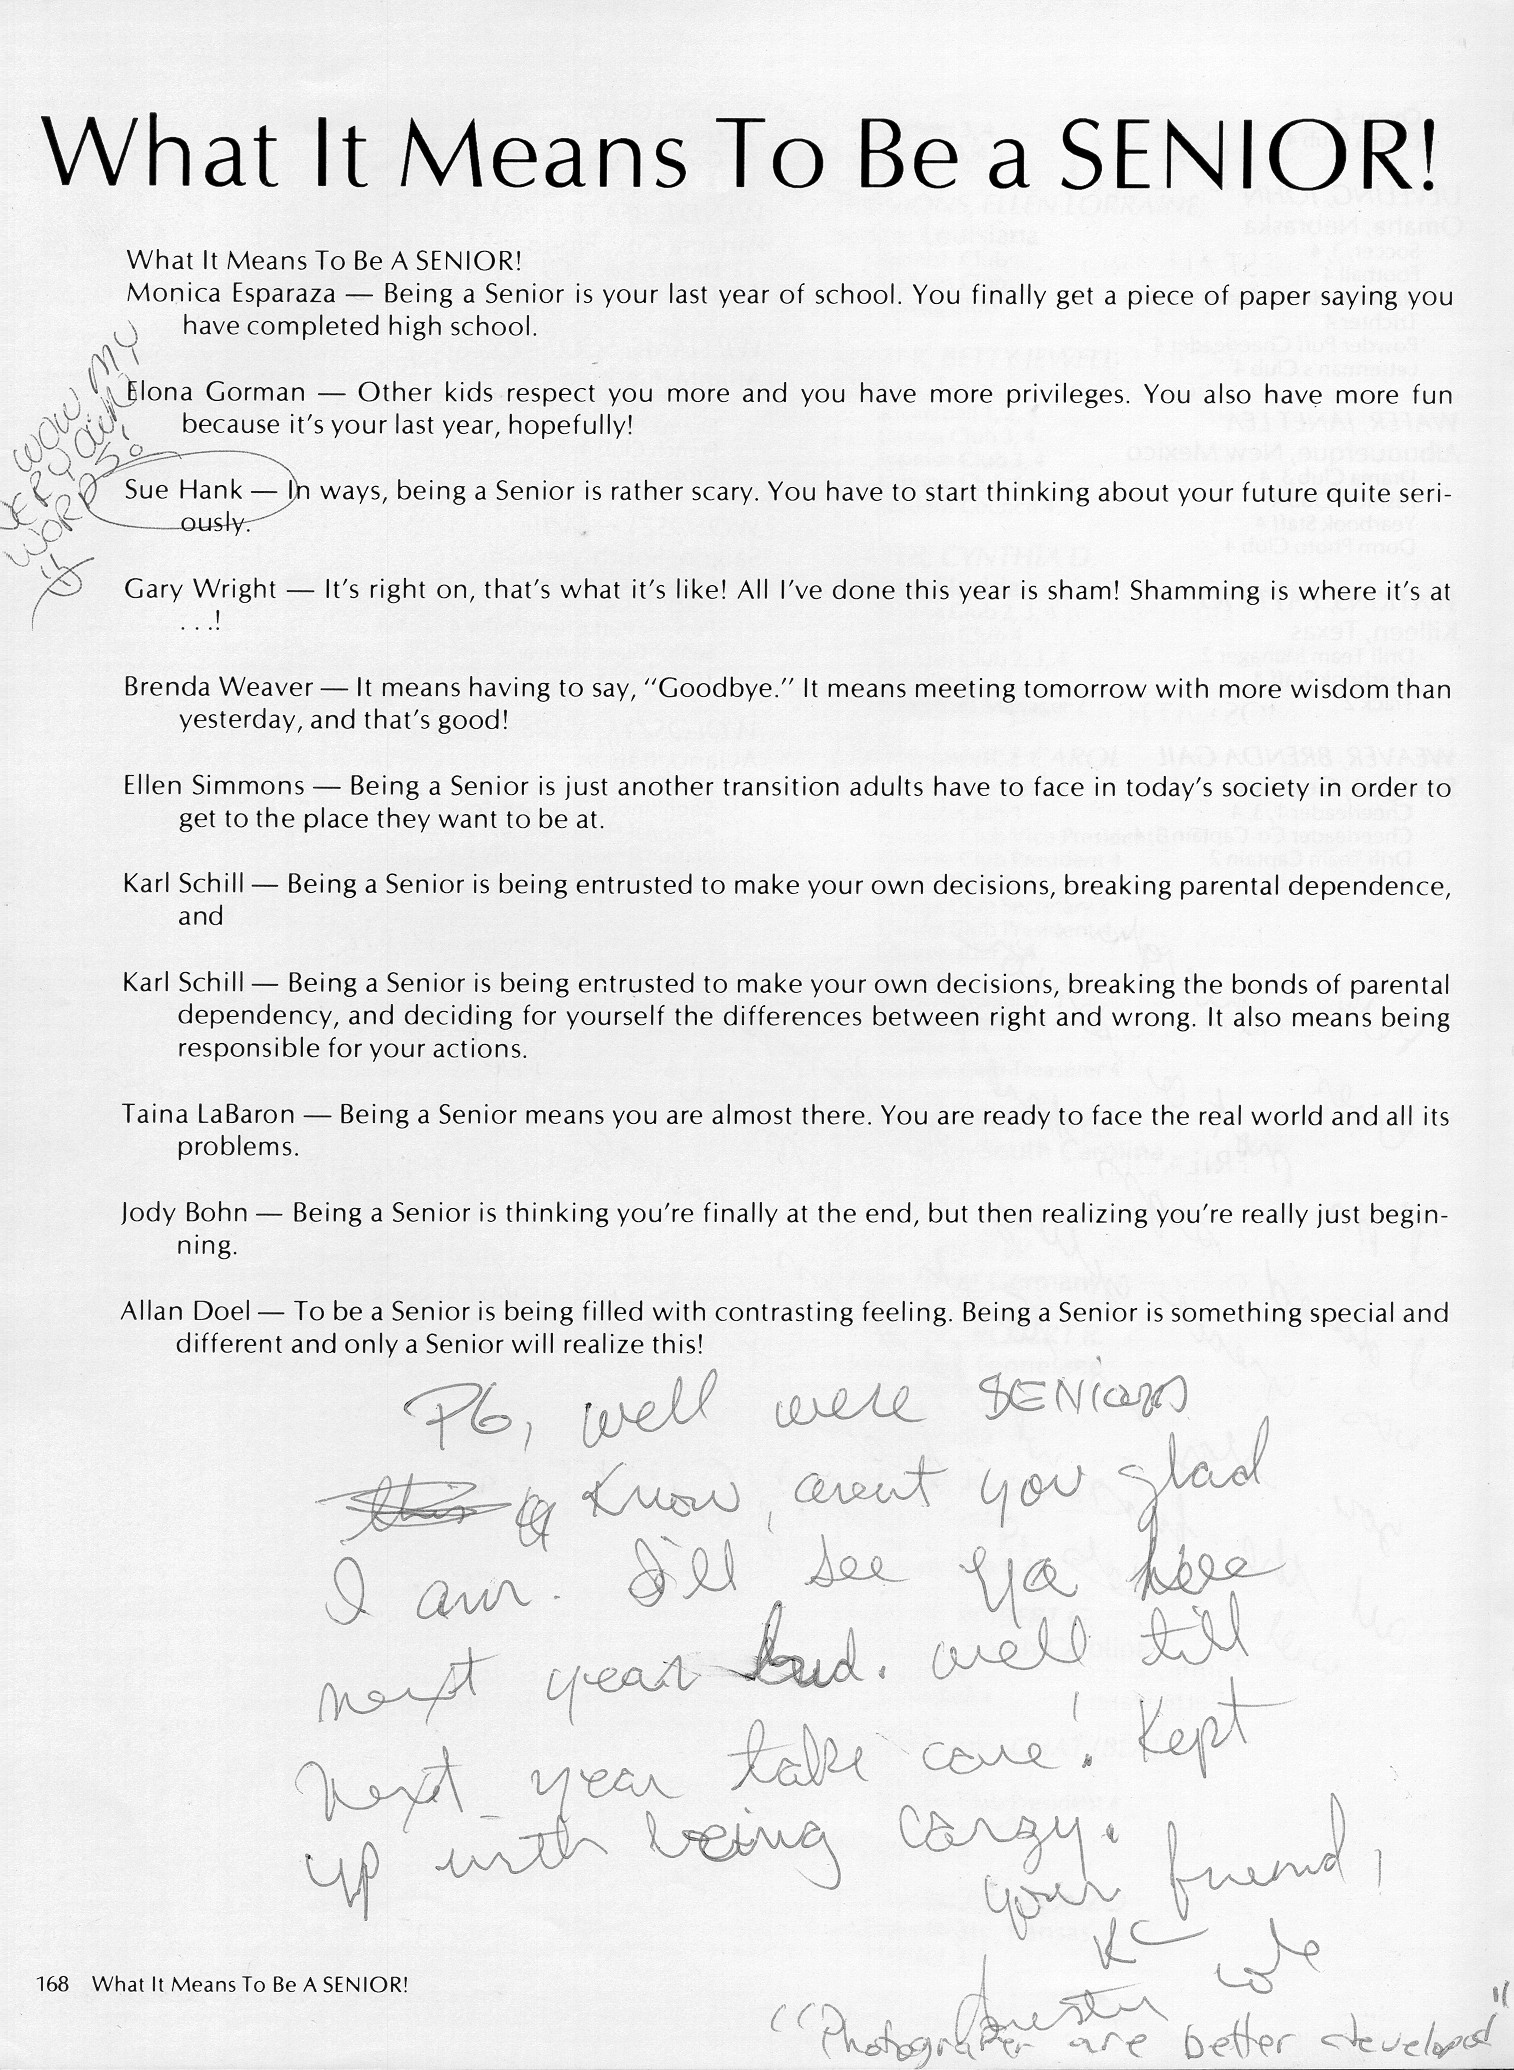 What It Means To Be a SENIOR!
What It Means To Be A SENIOR!
Monica Esparaza — Being a Senior is your last year of school. You finally get a piece of paper saying you
have completed high school.
Elona Gorman — Other kids respect you more and you have more privileges. You also have more fun
because it's your last year, hopefully!
WOW MY
VERY OWN
WORDS!
Sue Hank — In ways, being a Senior is rather scary. You have to start thinking about your future quite seri-
ously.
Gary Wright — It's right on, that's what it's like! All I've done this year is sham! Shamming is where it's at
. . .!
Brenda Weaver — It means having to say, "Goodbye." It means meeting tomorrow with more wisdom than
yesterday, and that's good!
Ellen Simmons — Being a Senior is just another transition adults have to face in today's society in order to
get to the place they want to be at.
Karl Schill — Being a Senior is being entrusted to make your own decisions, breaking parental dependence,
and
Karl Schill — Being a Senior is being entrusted to make your own decisions, breaking the bonds of parental
dependency, and deciding for yourself the differences between right and wrong. It also means being
responsible for your actions.
Taina LaBaron — Being a Senior means you are almost there. You are ready to face the real world and all its
problems.
Jody Bohn — Being a Senior is thinking you're finally at the end, but then realizing you're really just begin-
ning.
Allan Doel — To be a Senior is being filled with contrasting feeling. Being a Senior is something special and
different and only a Senior will realize this!
PG, well were SENiors
Know, arent you glad
I am. I'll see ya here
next year bud. well till
next year take care! Kept
up with being carzy.
your friend,
KC
Cole
"Photographer are better developed"
168 What It Means To Be A SENIOR!